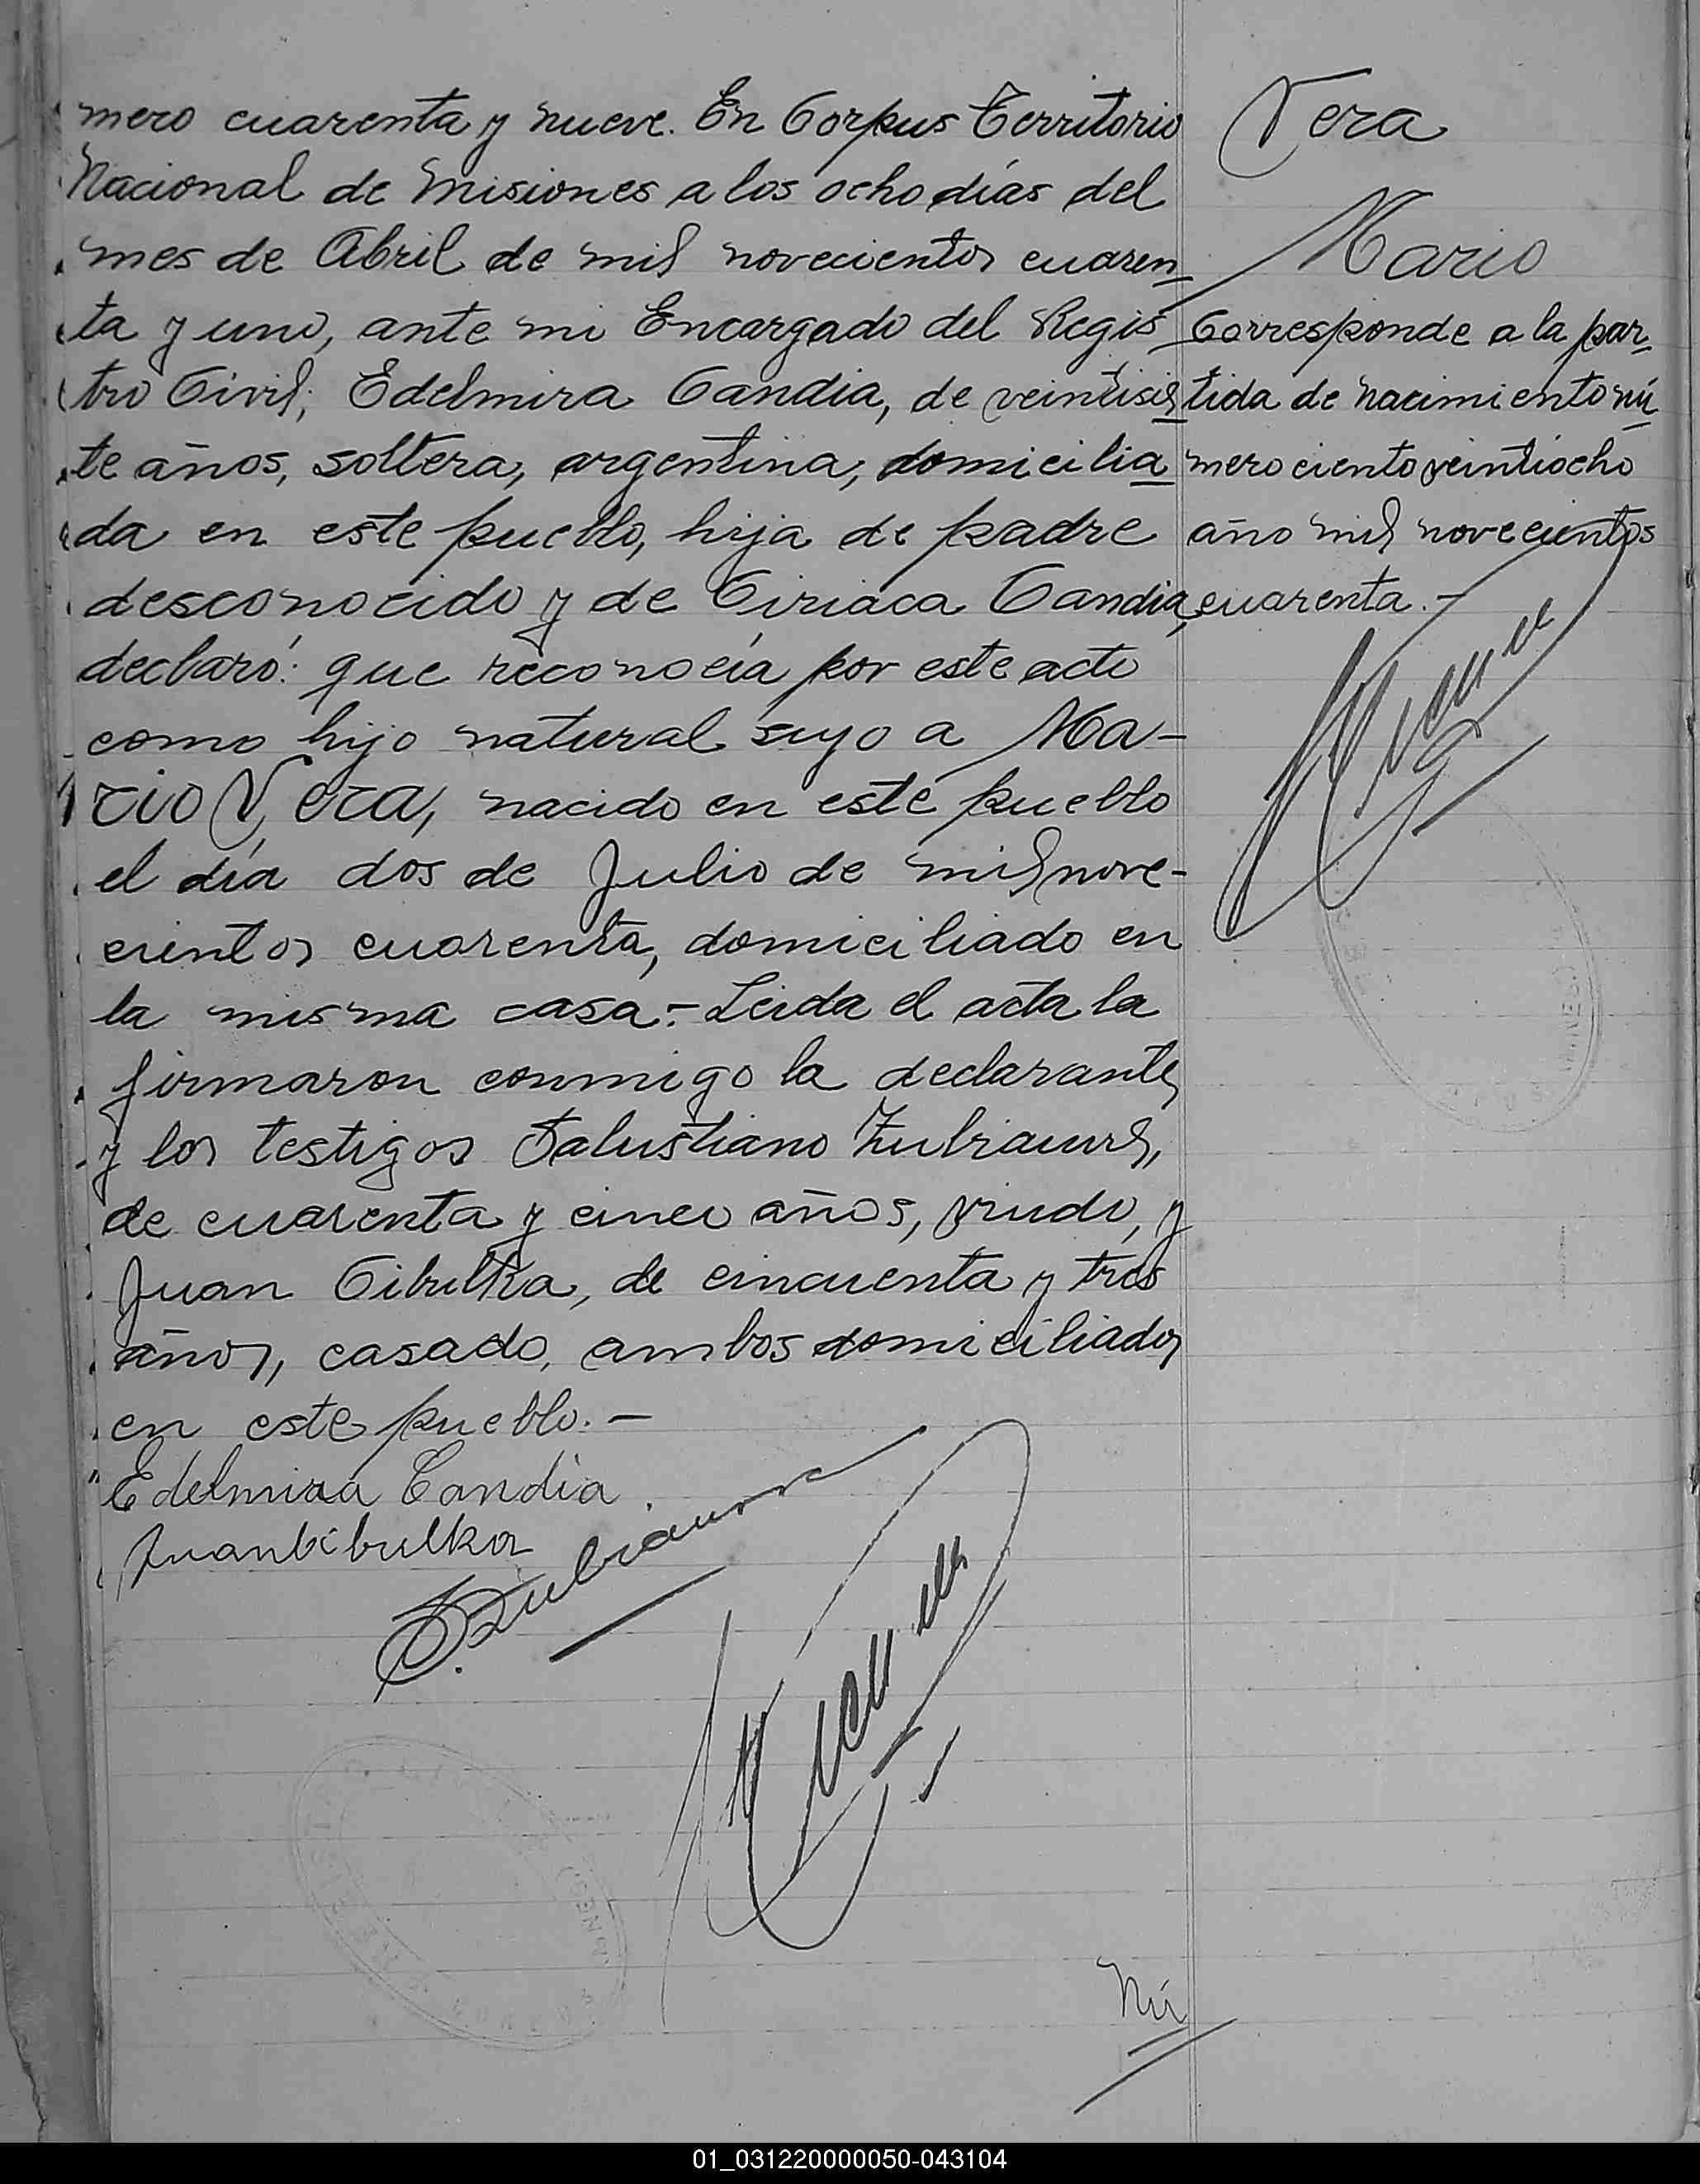 mero cuarenta y nueve. En Corpus Territorio
Nacional de Misiones a los ocho días del
mes de Abril de mil novecientos cuaren
ta y uno, ante mi Encargado del Regis
tro Civil; Edelmira Candia, de veintisie
te años, soltera, argentina, domicilia
da en este pueblo, hija de padre
desconocido y de Ciriaca Candia,
declaró: que reconocía por este acto
como hijo natural suyo a Ma-
rio Vera, nacido en este pueblo
el día dos de Julio de mil nove-
cientos cuarenta, domiciliado en
la misma casa.- Leida el acta la
firmaron conmigo la declarante
y los testigos Salustiano Zubiaurre,
de cuarenta y cinco años, viudo, y
Juan Cibulka, de cincuenta y tres
años, casado, ambos domiciliados
en este pueblo.-
Edelmira Candia
Juan Cibulka
S. Zubiaurre
Nú
Vera
Mario
Corresponde a la par
tida de nacimiento nú
mero ciento veintiocho
año mil novecientos
cuarenta.-
01_031220000050-043104